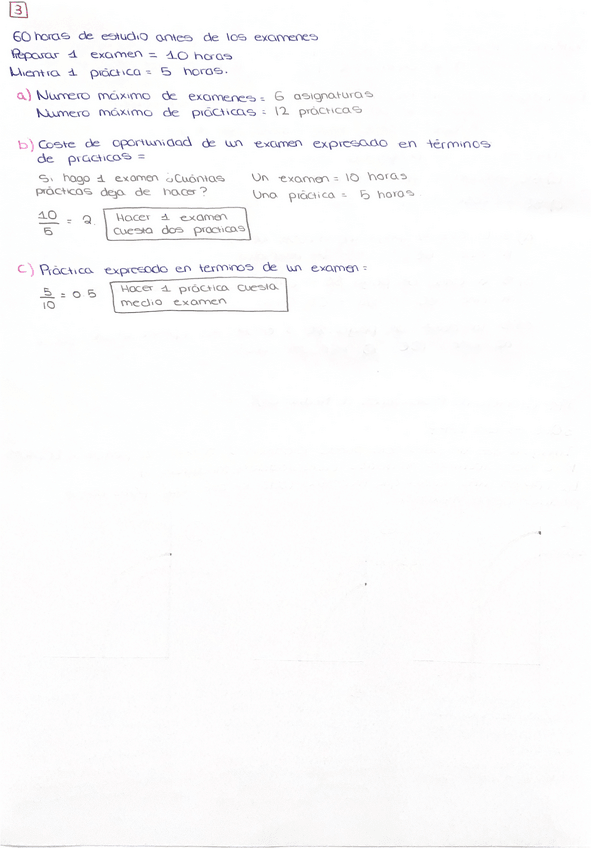 3
60 horas de estudio antes de los examenes
Preparar 1 examen = 10 horas
Mientra 1 práctica = 5 horas.
a) Numero máximo de examenes = 6 asignaturas
Numero máximo de prácticas = 12 prácticas
b) Coste de oportunidad de un examen expresado en términos
de practicas =
Si hago 1 examen ¿Cuántas
prácticas deja de hacer?
Un examen = 10 horas
Una práctica = 5 horas
10/5 = 2
Hacer 1 examen
cuesta dos practicas
c) Práctica expresado en terminos de un examen =
5/10 = 0 5
Hacer 1 práctica cuesta
medio examen